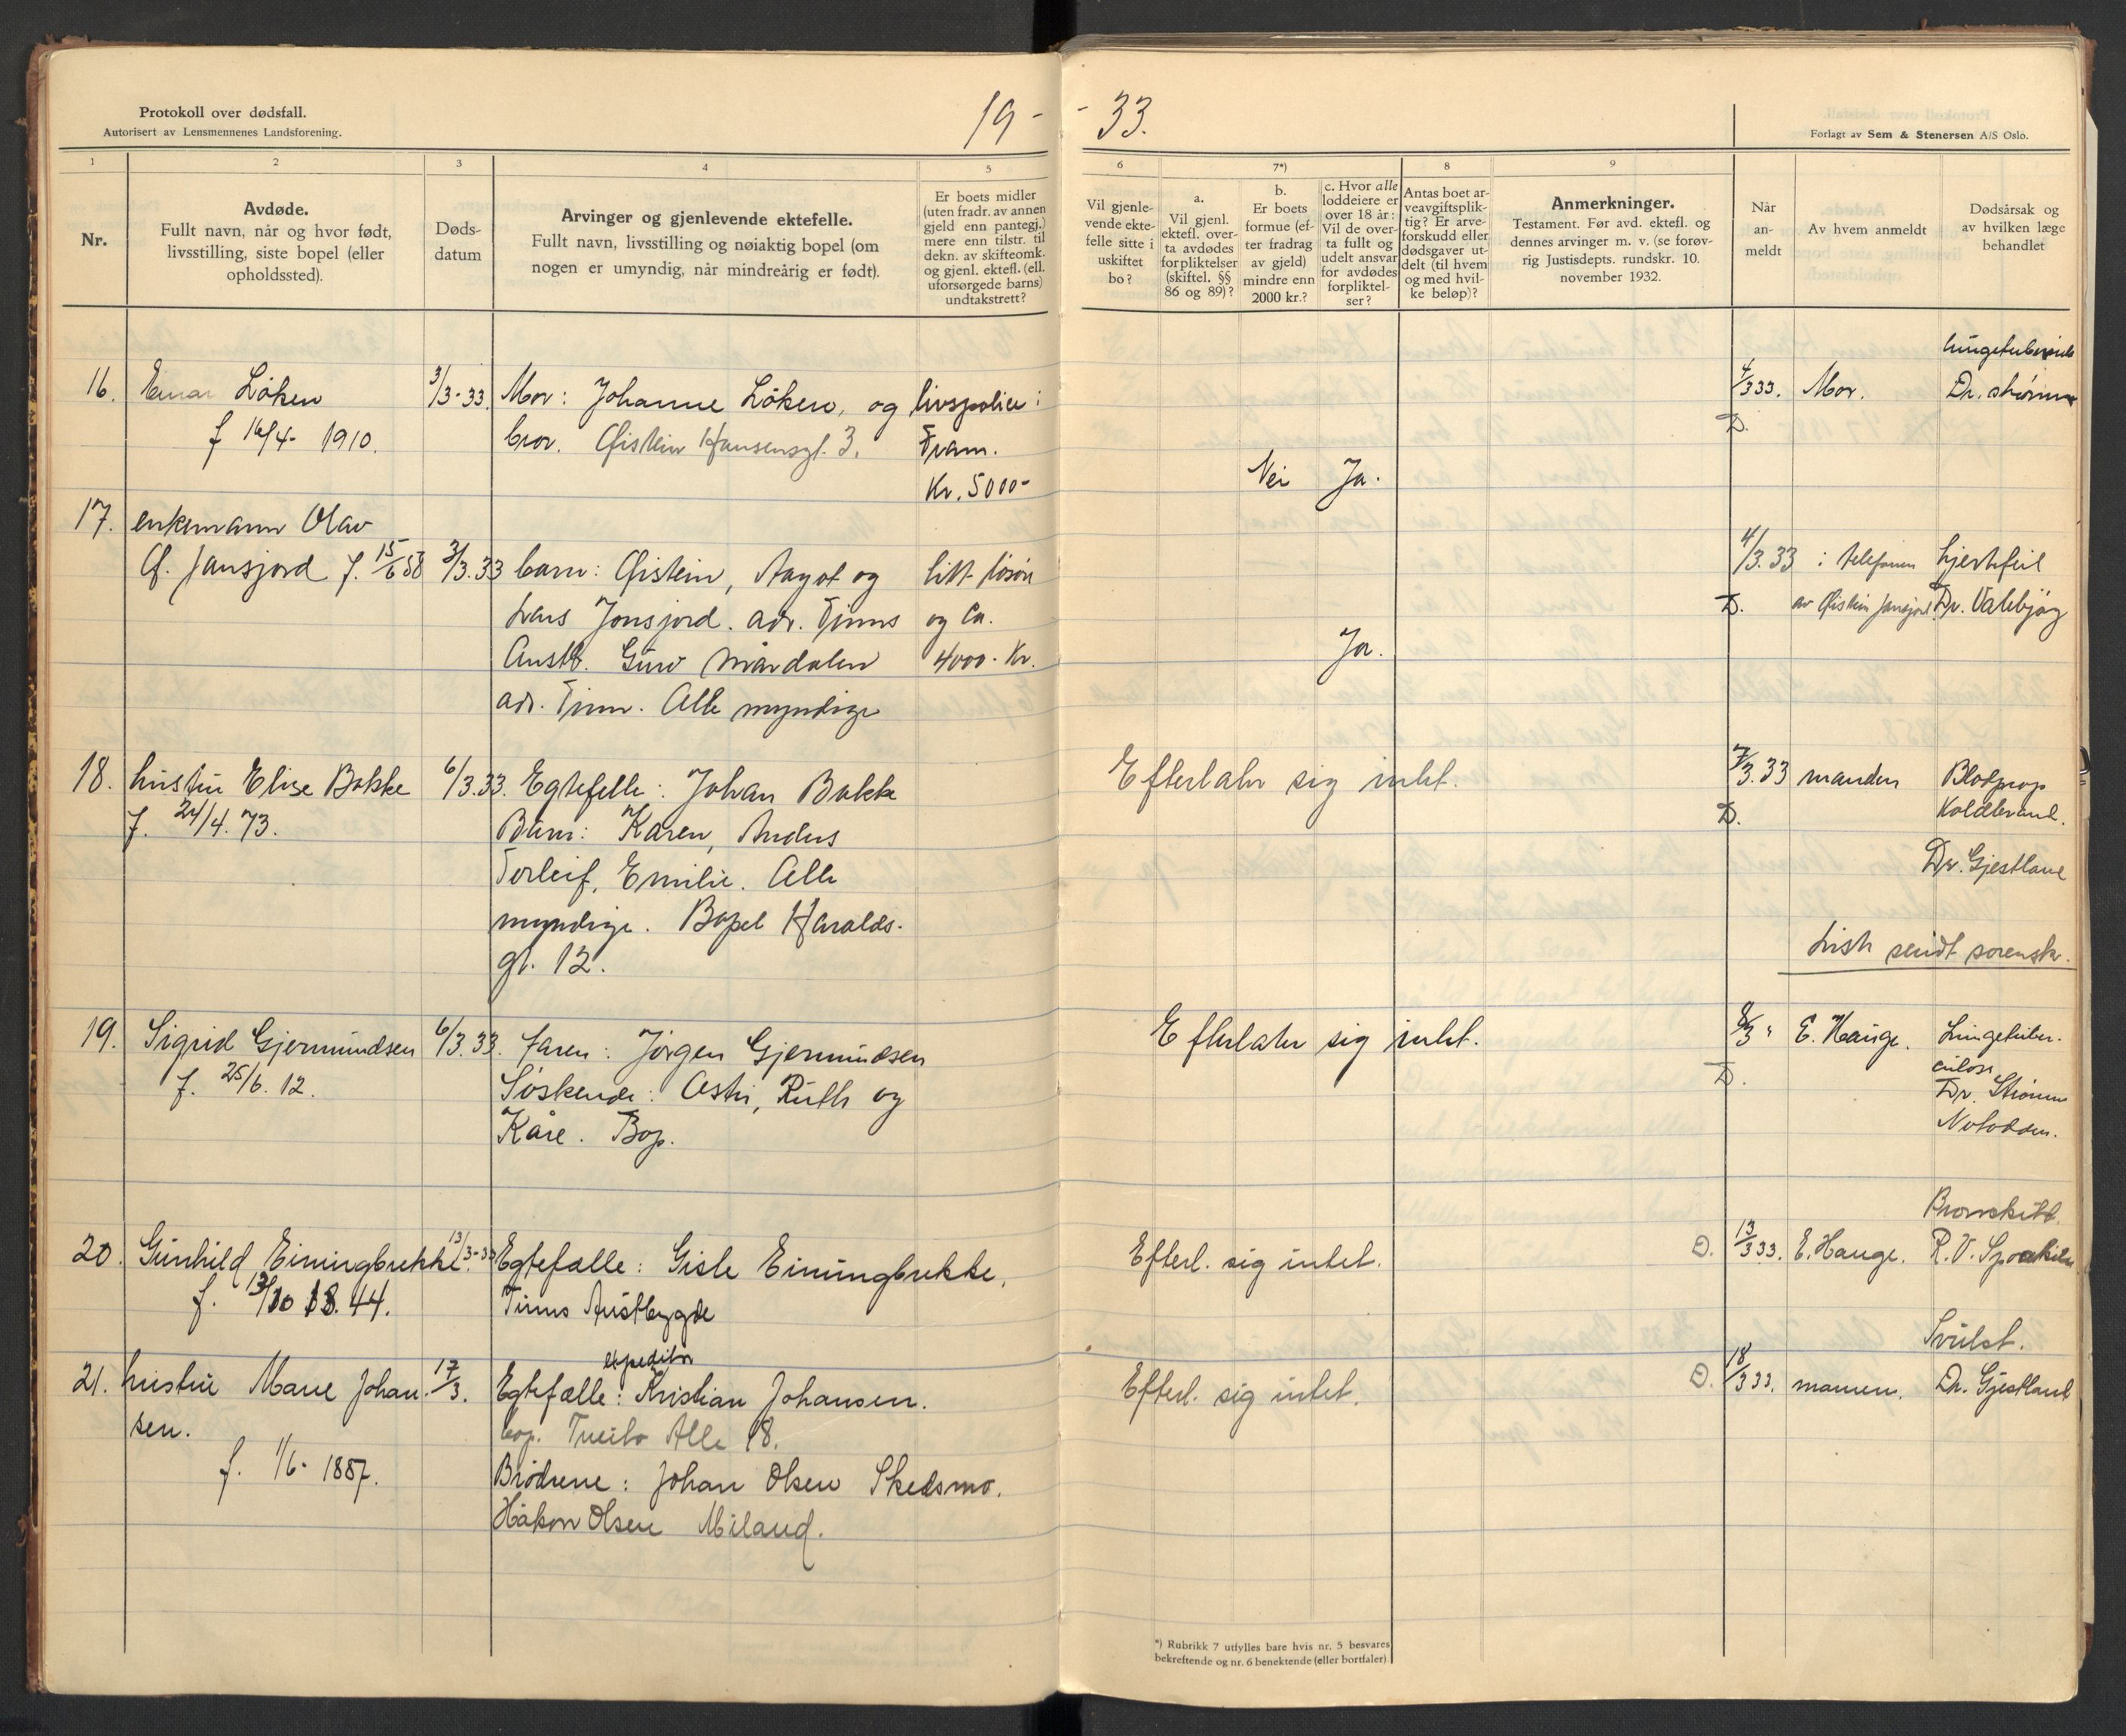 Protokoll over dødsfall.
Autorisert av Lensmennenes Landsforening.
19-
1
2
3
4
5
Nr.
Avdøde.
Fullt navn, når og hvor født,
livsstilling, siste bopel (eller
opholdssted).
Døds-
datum
Arvinger og gjenlevende ektefelle.
Fullt navn, livsstilling og nøiaktig bopel (om
nogen er umyndig, når mindreårig er født).
Er boets midler
(uten fradr. av annen
gjeld enn pantegj.)
mere enn tilstr. til
dekn. av skifteomk.
og gjenl. ektefl. (ell.
uforsørgede barns)
undtakstrett?
16. Einar Löken 3/3-33. Mor: Johanne Löken, og livspolice i
f 16/4- 1910. bror. Øistein Hansensgt. 3. Fram.
Kr. 5000-
17. enkemann Olav
O. Jansjord f. 15/6 58 3/3.33 barn: Øistein, Aagot og litt løsøre
Lars Jonsjord. adr. Tinns og ca.
Austb. Guro Mårdalen 4000.- Kr.
adr. Tinn. Alle myndige
18. hustru Elise Bakke 6/3.33. Egtefelle: Johan Bakke
f. 24/4.73. Barn: Karen, Anders
Torleif, Emilie. Alle
myndige. Bopel Haralds-
gt. 12.
19. Sigrid Gjermundsen 6/3.33. faren: Jörgen Gjermundsen
f. 25/6. 12. Söskende: Astri, Ruth og
Kåre. Bop.
20. Gunhild Einungbrekke 13/3-33 Egtefælle: Gisle Einungbrekke,
f. 13/10 18.44. Tinns Austbygde
expeditør
21. hustru Marie Johan- 17/3. Egtefælle: Kristian Johansen.
sen. bop. Tveito Alle 18.
f. 1/6- 1887. Brødrene: Johan Olsen Skedsmo.
Håkon Olsen Miland.
- 33.
Forlagt av Sem & Stenersen A/S Oslo.
6
7*)
8
9
Vil gjenle-
vende ekte-
felle sitte i
uskiftet
bo?
a.
Vil gjenl.
ektefl. over-
ta avdødes
forpliktelser
(skiftel. §§
86 og 89)?
b.
Er boets
formue (ef-
ter fradrag
av gjeld)
mindre enn
2000 kr.?
c. Hvor alle
loddeiere er
over 18 år:
Vil de over-
ta fullt og
udelt ansvar
for avdødes
forpliktel-
ser?
Antas boet ar-
veavgiftsplik-
tig? Er arve-
forskudd eller
dødsgaver ut-
delt (til hvem
og med hvil-
ke beløp)?
Anmerkninger.
Testament. Før avd. ektefl. og
dennes arvinger m. v. (se forøv-
rig Justisdepts. rundskr. 10.
november 1932.
Når
an-
meldt
Av hvem anmeldt
Dødsårsak og
av hvilken læge
behandlet
4/3 33. Mor. Dr. Strømme
D.
Nei Ja.
4/3.33 i telefonen hjertefeil
D. av Øistein Jansjord Dr. Valebjørg
Ja.
Efterlater sig intet. 7/3.33 manden Blodprop
D. Koldbrand.
Dr. Gjestland
Liste sendt sorenskr.
Efterlater sig intet. 8/3 " E. Hauge. Lungetuber-
culose
D. Dr. Strømme
Notodden.
Bronskitt.
Efterl. sig intet. D. 13/3 33. E. Hauge.
Svulst.
Efterl. sig intet. D. 18/3 33. mannen. Dr. Gjestland
*) Rubrikk 7 utfylles bare hvis nr. 5 besvares
bekreftende og nr. 6 benektende (eller bortfaler)